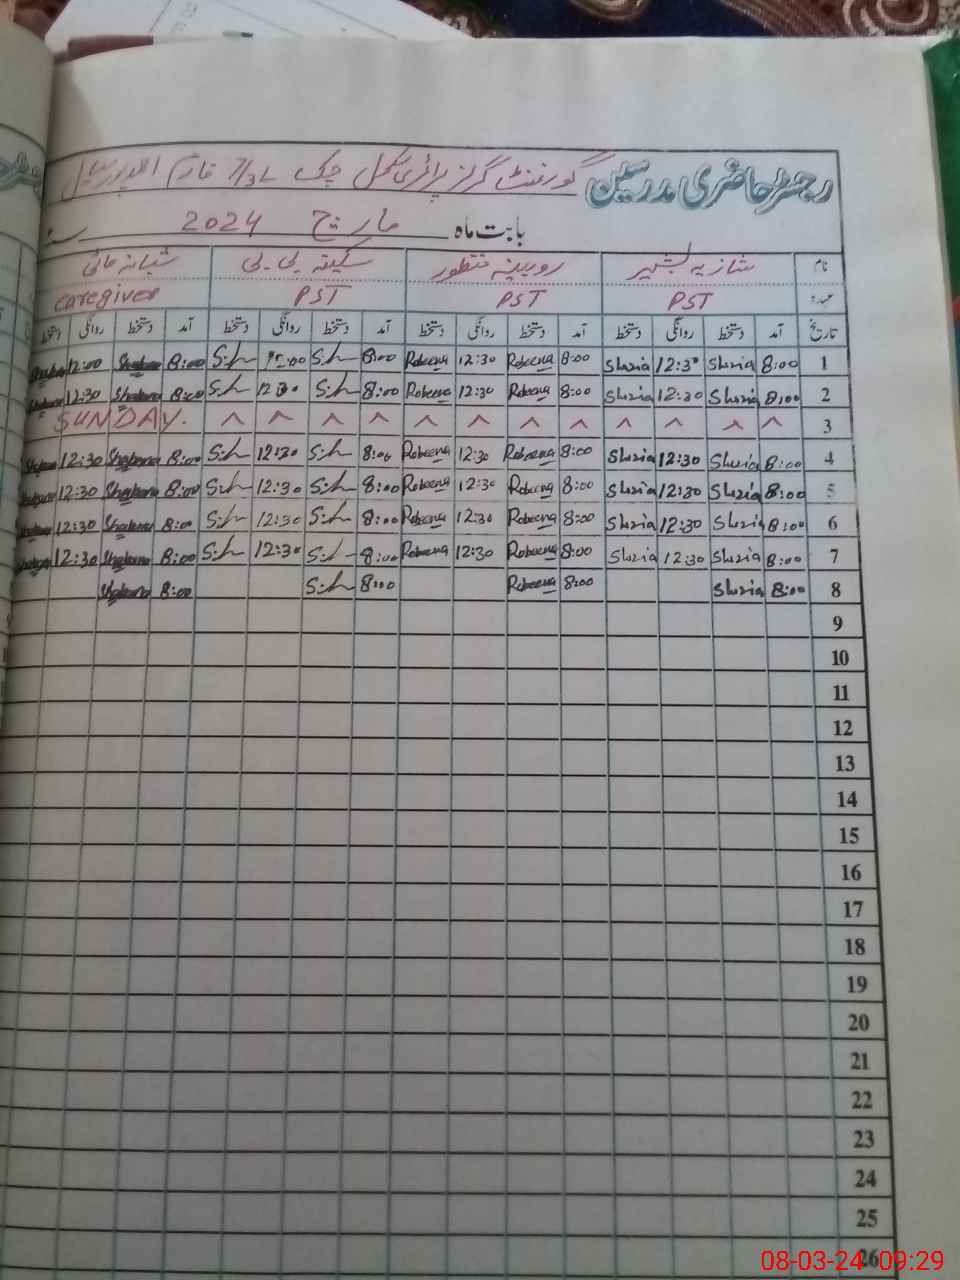 رجسٹر حاضری مدرسین گورنمنٹ گرلز پرائمری سکول چک 7/3L
بابت ماہ مارچ 2024
نام شازیہ بشیر روبینہ منظور سکینہ بی بی شبانہ مائی
عہدہ PST PST PST Caregiver
تاریخ آمد دستخط روانگی دستخط آمد دستخط روانگی دستخط آمد دستخط روانگی دستخط آمد دستخط روانگی دستخط
1 8:00 Shazia 12:30 Shazia 8:00 Robeena 12:30 Robeena 8:00 S.h 12:00 S.h 8:00 Shabana 12:00
2 8:00 Shazia 12:30 Shazia 8:00 Robeena 12:30 Robeena 8:00 S.h 12:30 S.h 8:00 Shabana 12:30
3 SUNDAY.
4 8:00 Shazia 12:30 Shazia 8:00 Robeena 12:30 Robeena 8:00 S.h 12:30 S.h 8:00 Shabana 12:30
5 8:00 Shazia 12:30 Shazia 8:00 Robeena 12:30 Robeena 8:00 S.h 12:30 S.h 8:00 Shabana 12:30
6 8:00 Shazia 12:30 Shazia 8:00 Robeena 12:30 Robeena 8:00 S.h 12:30 S.h 8:00 Shabana 12:30
7 8:00 Shazia 12:30 Shazia 8:00 Robeena 12:30 Robeena 8:00 S.h 12:30 S.h 8:00 Shabana 12:30
8 8:00 Shazia 8:00 Robeena 8:00 S.h 8:00 Shabana
9
10
11
12
13
14
15
16
17
18
19
20
21
22
23
24
25
26
08-03-24 09:29